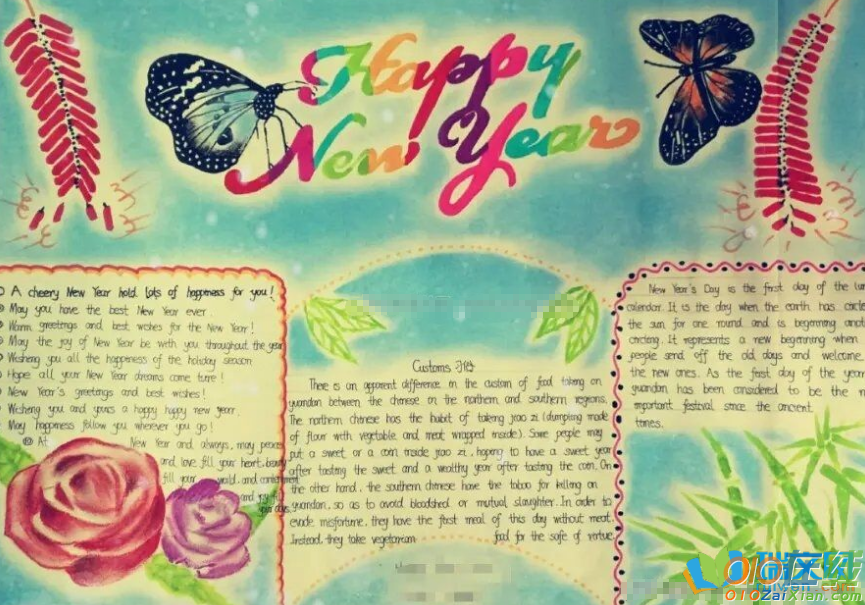 Happy
New Year
A cheery New Year hold lots of happiness for you!
May you have the best New Year ever.
Warm greetings and best wishes for the New Year!
May the joy of New Year be with you throughout the year
Wisheng you all the happiness of the holiday season
Hope all your New Year dreams come ture!
New Year's greetings and best wishes!
Wisheng you and yours a happy happy new year.
May happiness follow you wherever you go!
At New Year and always, may peace
and love fill your heart, beauty
fill your world, and contentment
and joy fill
your days.
Customs 习俗
There is an apparent difference in the custom of food taking on
yuandan between the chinese in the northern and southern regions.
The northern chinese has the habit of takeng jiao zi (dumpling made
of flour with vegetable and meat wrapped inside). Some people may
put a sweet or a coin inside jiao zi, hoping to have a sweet year
after tasting the sweet and a wealthy year after tasting the coin. On
the other hand, the southern chinese have the taboo for killing on
yuandan, so as to avoid bloodshed or mutual slaughter. In order to
evade misfortune, they have the first meal of this day without meat.
Instead, they take vegetarian food for the safe of virtue
New Year's Day is the first day of the lun
calendar. It is the day when the earth has circle
the sun for one round and is beginning anoth
circling. It represents a new beginning when
people send off the old days and welcome
the new ones. As the first day of the year
yuandan has been considered to be the m
important festival since the ancient
times.
010在线
010ZaiXian.com